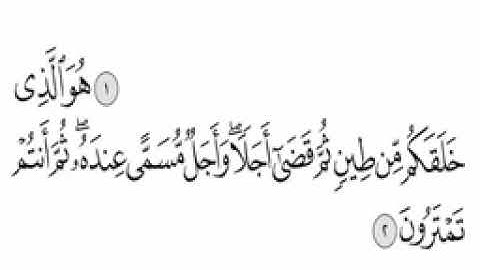 ۝١ هُوَ ٱلَّذِى
خَلَقَكُم مِّن طِينٍ ثُمَّ قَضَىٰٓ أَجَلًا ۖ وَأَجَلٌ مُّسَمًّى عِندَهُۥ ۖ ثُمَّ أَنتُمْ
تَمْتَرُونَ ۝٢